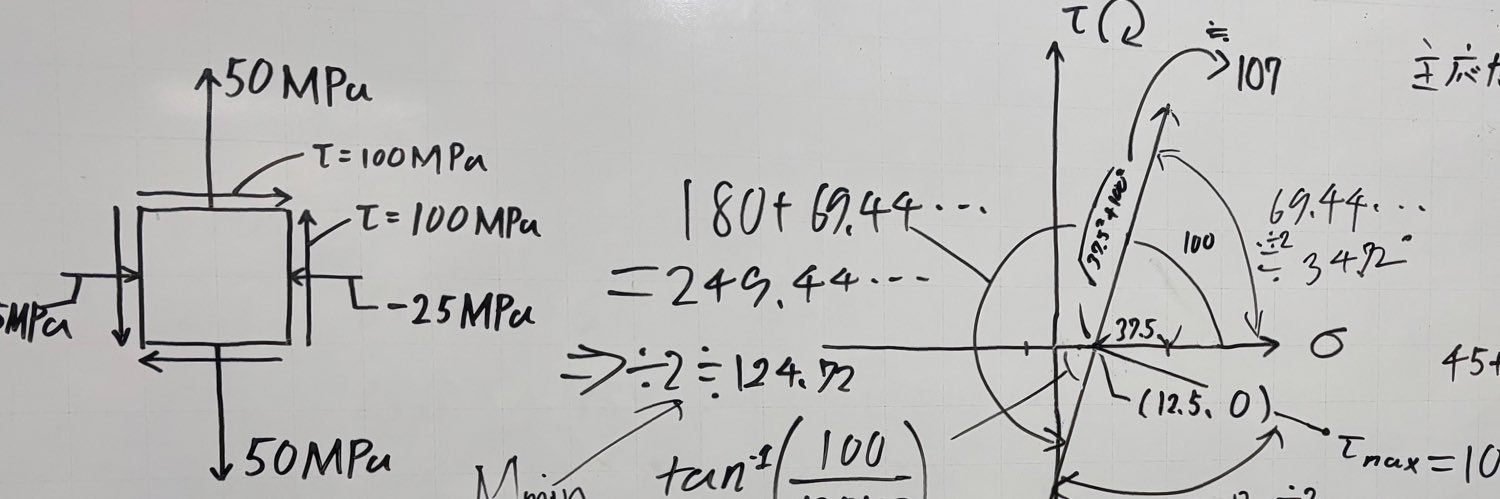 50MPa
τ=100MPa
τ=100MPa
MPa
-25MPa
50MPa
180+69.44…
=249.44…
⇒÷2≒124.72
Mmin
tan⁻¹(100
τ
≒
107
37.5²+100²
100
69.44…
÷2
≒ 34.72°
37.5
σ
(12.5, 0)
τmax=10
÷2
主応
45+